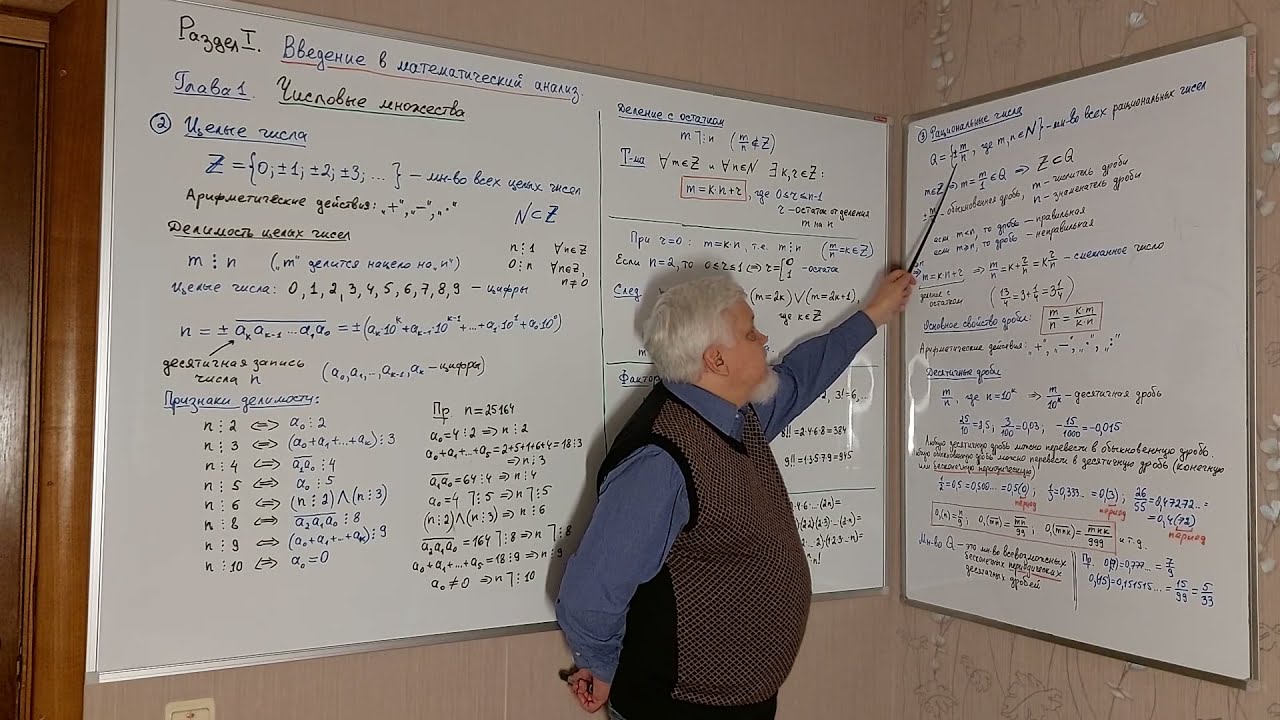 Раздел I. Введение в математический анализ.
Глава 1. Числовые множества
② Целые числа
Z = {0; ±1; ±2; ±3; ...} – мн-во всех целых чисел
Арифметические действия: „+“, „–“, „·“
N ⊂ Z
Делимость целых чисел
n ⋮ 1 ∀n∈Z
m ⋮ n („m“ делится нацело на „n“)
0 ⋮ n ∀n∈Z, n≠0
Целые числа: 0, 1, 2, 3, 4, 5, 6, 7, 8, 9 – цифры
n = ± a̅ₖa̅ₖ₋₁...a̅₁a̅₀ = ±(aₖ·10ᵏ+aₖ₋₁·10ᵏ⁻¹+...+a₁·10¹+a₀·10⁰)
десятичная запись
числа n (a₀, a₁, .., aₖ₋₁, aₖ – цифры)
Признаки делимости:
n ⋮ 2 ⇔ a₀ ⋮ 2
n ⋮ 3 ⇔ (a₀+a₁+...+aₖ) ⋮ 3
n ⋮ 4 ⇔ a̅₁a̅₀ ⋮ 4
n ⋮ 5 ⇔ a₀ ⋮ 5
n ⋮ 6 ⇔ (n ⋮ 2) ∧ (n ⋮ 3)
n ⋮ 8 ⇔ a̅₂a̅₁a̅₀ ⋮ 8
n ⋮ 9 ⇔ (a₀+a₁+...+aₖ) ⋮ 9
n ⋮ 10 ⇔ a₀ = 0
Пр. n = 25164
a₀ = 4 ⋮ 2 ⇒ n ⋮ 2
a₀+a₁+...+a₅ = 2+5+1+6+4 = 18 ⋮ 3
⇒ n ⋮ 3
a̅₁a̅₀ = 64 ⋮ 4 ⇒ n ⋮ 4
a₀ = 4 ⌉⋮ 5 ⇒ n ⌉⋮ 5
(n ⋮ 2) ∧ (n ⋮ 3) ⇒ n ⋮ 6
a̅₂a̅₁a̅₀ = 164 ⌉⋮ 8 ⇒ n ⌉⋮ 8
a₀+a₁+...+a₅ = 18 ⋮ 9 ⇒ n ⋮ 9
a₀ ≠ 0 ⇒ n ⌉⋮ 10
Деление с остатком
m ⌉⋮ n (m/n ∉ Z)
Т-ма ∀m∈Z и ∀n∈N ∃ k, r∈Z:
m = k·n+r, где 0≤r≤n-1
r – остаток от деления
m на n
При r=0: m=k·n, т.е. m ⋮ n (m/n = k∈Z)
Если n=2, то 0≤r≤1 ⇔ r=[0 1 – остаток
След.
(m=2k)∨(m=2k+1),
где k∈Z
2, 3!=6,...
8!!=2·4·6·8=384
9!!=1·3·5·7·9=945
③ Рациональные числа
Q = {±m/n, где m, n∈N} – мн-во всех рациональных чисел
m∈Z ⇒ m = m/1 ∈ Q ⇒ Z⊂Q
– обыкновенная дробь, m – числитель дроби
n – знаменатель дроби
если m<n, то дробь – правильная
если m≥n, то дробь – неправильная
m=k·n+r ⇒ m/n = k + r/n = k r/n – смешанное число
деление с
остатком (13/4 = 3+1/4 = 3 1/4)
Основное свойство дроби: m/n = k·m/k·n
Арифметические действия: „+“, „–“, „·“, „:“
Десятичные дроби
m/n, где n=10ᵏ ⇒ m/10ᵏ – десятичная дробь
25/10 = 2,5, 3/100 = 0,03, -15/1000 = -0,015
Любую десятичную дробь можно перевести в обыкновенную дробь.
обыкновенную дробь можно перевести в десятичную дробь (конечную
или бесконечную периодическую)
1/2 = 0,5 = 0,500... = 0,5(0); 1/3 = 0,333... = 0,(3); 26/55 = 0,47272.. =
= 0,4(72)
период период период
0,(n) = n/9; 0,(mn) = mn/99; 0,(mnk) = mnk/999 и т.д.
Мн-во Q – это мн-во всевозможных
бесконечных периодических
десятичных дробей
Пр. 0,(7) = 0,777... = 7/9
0,(15) = 0,151515... = 15/99 = 5/33